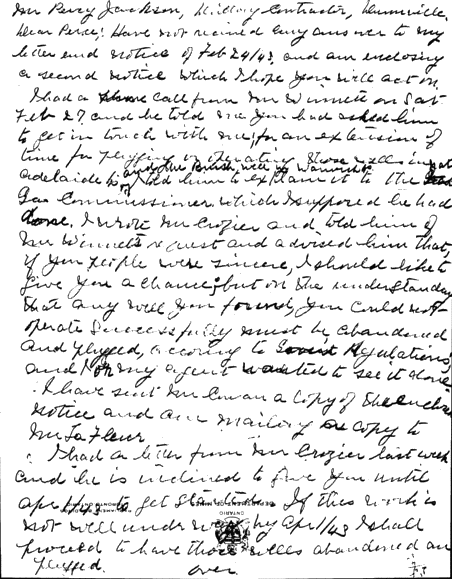 Mr Percy Jackson, Drilling Contractor, Dunnville.
Dear Perce: Have not received any answer to my
letter and notice of Feb 24/43, and am enclosing
a second notice which I hope you will act on.
I had a phone call from Mr Winnett on Sat
Feb 27, and he told me you had asked him
to get in touch with me, for an extension of
time for plugging or operating those wells in
adelaide and the British well of Warwick
I told him to explain it to the
Gas Commissioner which I supposed he had
done. I wrote Mr Crozier and told him of
Mr Winnett's request and advised him that,
if you people were sincere, I should like to
give you a chance; but on the understanding
that any well you found, you could not
operate successfully must be abandoned
and plugged, according to Regulations
and I or my agent wanted to see it done.
I have sent Mr a copy of the enclosed
notice and am mailing a copy to
Mr La Fleur
I had a letter from Mr Crozier last week
and he is inclined to give you until
apr to get started. If this work is
ONTARIO
DEPARTMENT OF MINES
not well under way by Apr 1/43 I shall
proceed to have those wells abandoned and
plugged.
over